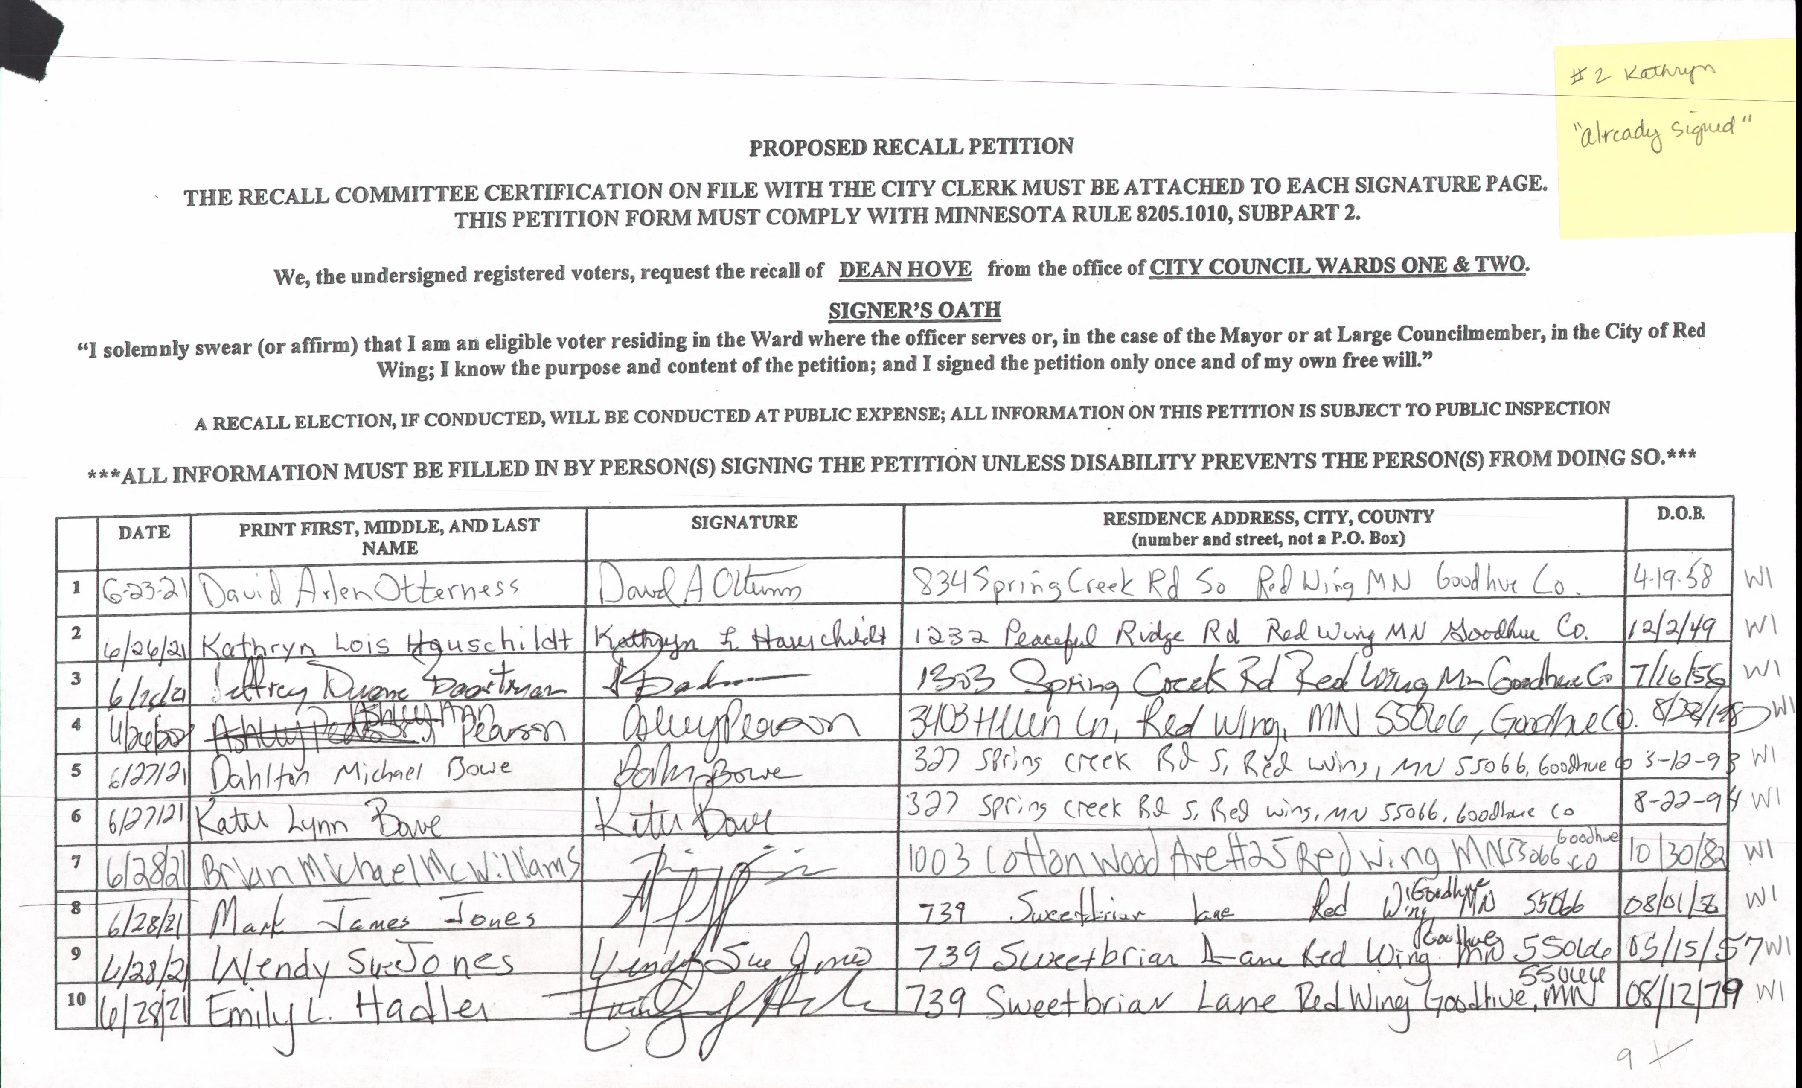 #2 Kathryn
"already signed"
PROPOSED RECALL PETITION
THE RECALL COMMITTEE CERTIFICATION ON FILE WITH THE CITY CLERK MUST BE ATTACHED TO EACH SIGNATURE PAGE.
THIS PETITION FORM MUST COMPLY WITH MINNESOTA RULE 8205.1010, SUBPART 2.
We, the undersigned registered voters, request the recall of DEAN HOVE from the office of CITY COUNCIL WARDS ONE & TWO.
SIGNER'S OATH
"I solemnly swear (or affirm) that I am an eligible voter residing in the Ward where the officer serves or, in the case of the Mayor or at Large Councilmember, in the City of Red
Wing; I know the purpose and content of the petition; and I signed the petition only once and of my own free will."
A RECALL ELECTION, IF CONDUCTED, WILL BE CONDUCTED AT PUBLIC EXPENSE; ALL INFORMATION ON THIS PETITION IS SUBJECT TO PUBLIC INSPECTION
***ALL INFORMATION MUST BE FILLED IN BY PERSON(S) SIGNING THE PETITION UNLESS DISABILITY PREVENTS THE PERSON(S) FROM DOING SO.***
DATE PRINT FIRST, MIDDLE, AND LAST NAME SIGNATURE RESIDENCE ADDRESS, CITY, COUNTY (number and street, not a P.O. Box) D.O.B.
1 6-23-21 David Arlen Otterness David A Otterness 834 Spring Creek Rd So Red Wing MN Goodhue Co. 4-19-58 W1
2 6/26/21 Kathryn Lois Hauschildt Kathryn L Hauschildt 1232 Peaceful Ridge Rd Red Wing MN Goodhue Co. 12/2/49 W1
3 6/26/21 Jeffrey Duane Boortman 1303 Spring Creek Rd Red Wing Mn Goodhue Co 7/16/56 W1
4 Ashley Ann Pearson Ashley Pearson 3403 Hllen Ln, Red Wing, MN 55066, Goodhue Co. W1
5 6/27/21 Dahlton Michael Bowe Dahlton Bowe 327 Spring creek Rd S, Red wing, MN 55066, Goodhue Co 3-12-93 W1
6 6/27/21 Katie Lynn Bowe Katie Bowe 327 Spring creek Rd S, Red wing, MN 55066, Goodhue Co 8-22-94 W1
7 6/28/21 Brian Michael McWilliams 1003 Cotton Wood Ave #25 Red Wing MN 55066 Goodhue CO 10/30/82 W1
8 6/28/21 Mark James Jones 739 Sweetbriar Lane Red Wing Goodhue MN 55066 W1
9 6/28/21 Wendy Sue Jones Wendy Sue Jones 739 Sweetbriar Lane Red Wing Goodhue MN 55066 05/15/57 W1
10 6/28/21 Emily L. Hadler 739 Sweetbriar Lane Red Wing Goodhue, MN 55066 08/12/79 W1
9